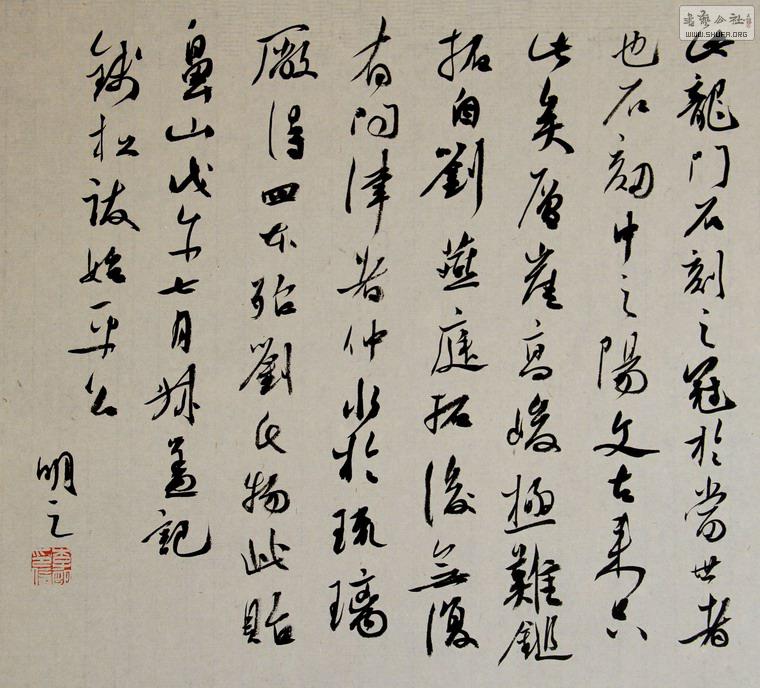 此龍門石刻之冠於當世者
也石刻中之陽文古来只
此矣層崖高峻極難鎚
拓自劉燕庭拓後無復
有問津者仲水於琉璃
廠得四本殆劉氏物此貽
山戊午七月叔蓋記
錢松跋始平公
明之
書藝公社
WWW.SHUFA.ORG